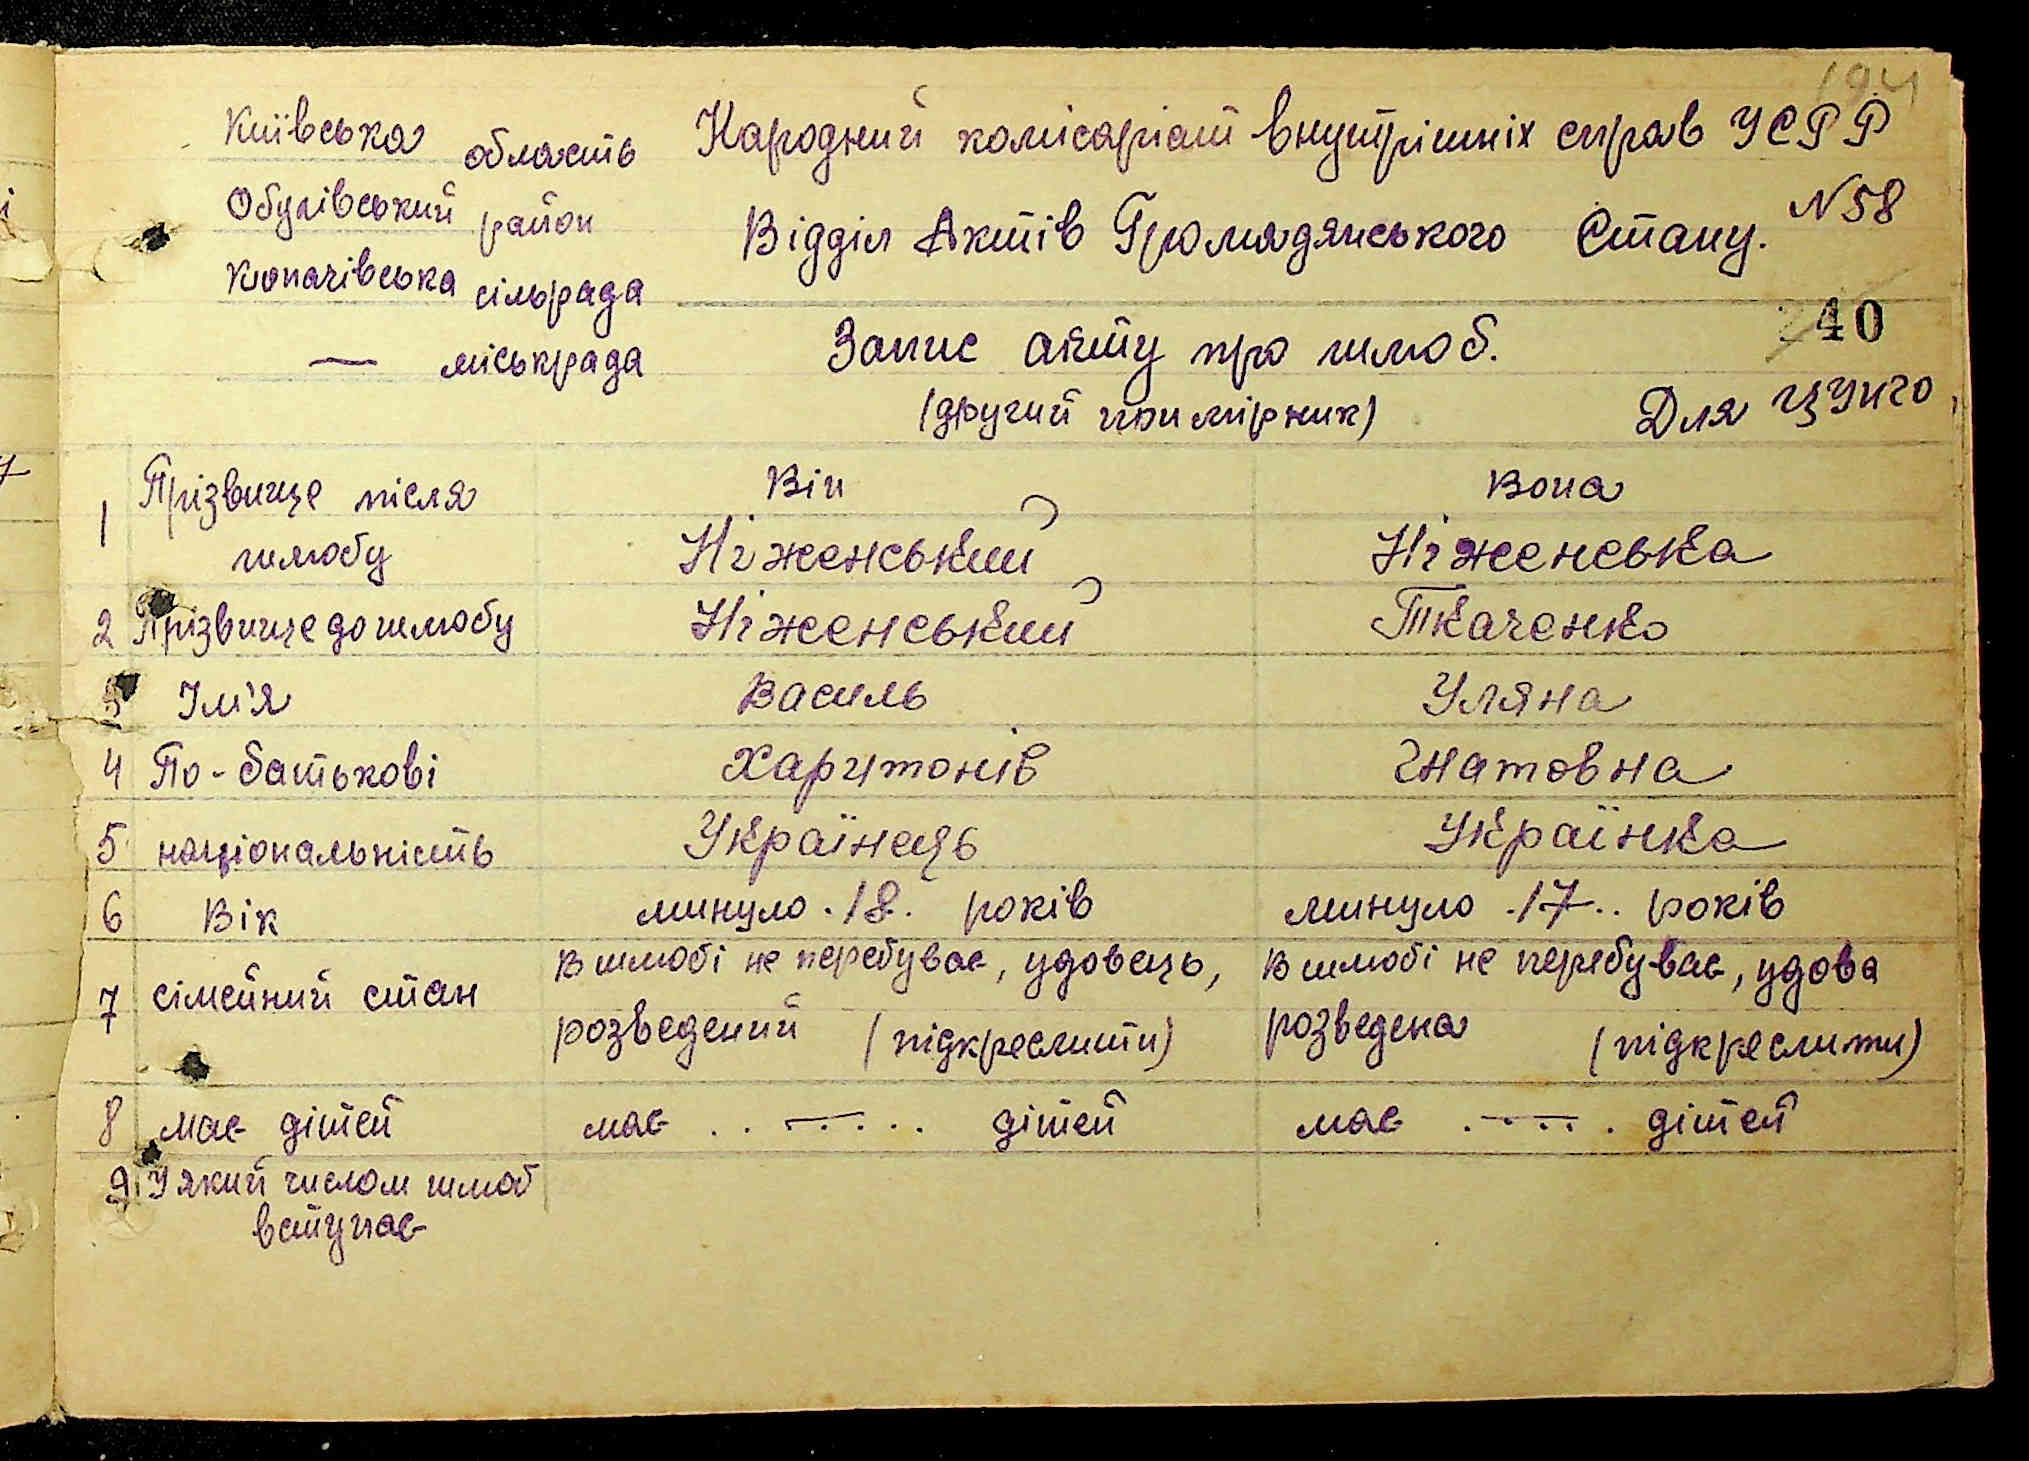 194
Київська область
Народний комісаріат внутрішніх справ УСРР
Обухівський район
Відділ Актів Громадянського Стану. N 58
Копачівська сільрада
40
— міськрада
Запис акту про шлюб.
(другий примірник)
Для ЦУНГО
Він
Вона
1 Прізвище після шлюбу
Ніженський
Ніженська
2 Прізвище до шлюбу
Ніженський
Ткаченко
3 Ім'я
Василь
Уляна
4 По-батькові
Харитонів
Гнатовна
5 національність
Українець
Українка
6 Вік
минуло .18. років
минуло .17.. років
7 сімейний стан
В шлюбі не перебуває, удовець,
розведений (підкреслити)
В шлюбі не перебуває, удова
розведена (підкреслити)
8 має дітей
має . . — . . . . дітей
має . — . . . . дітей
9 У який числом шлюб
вступає